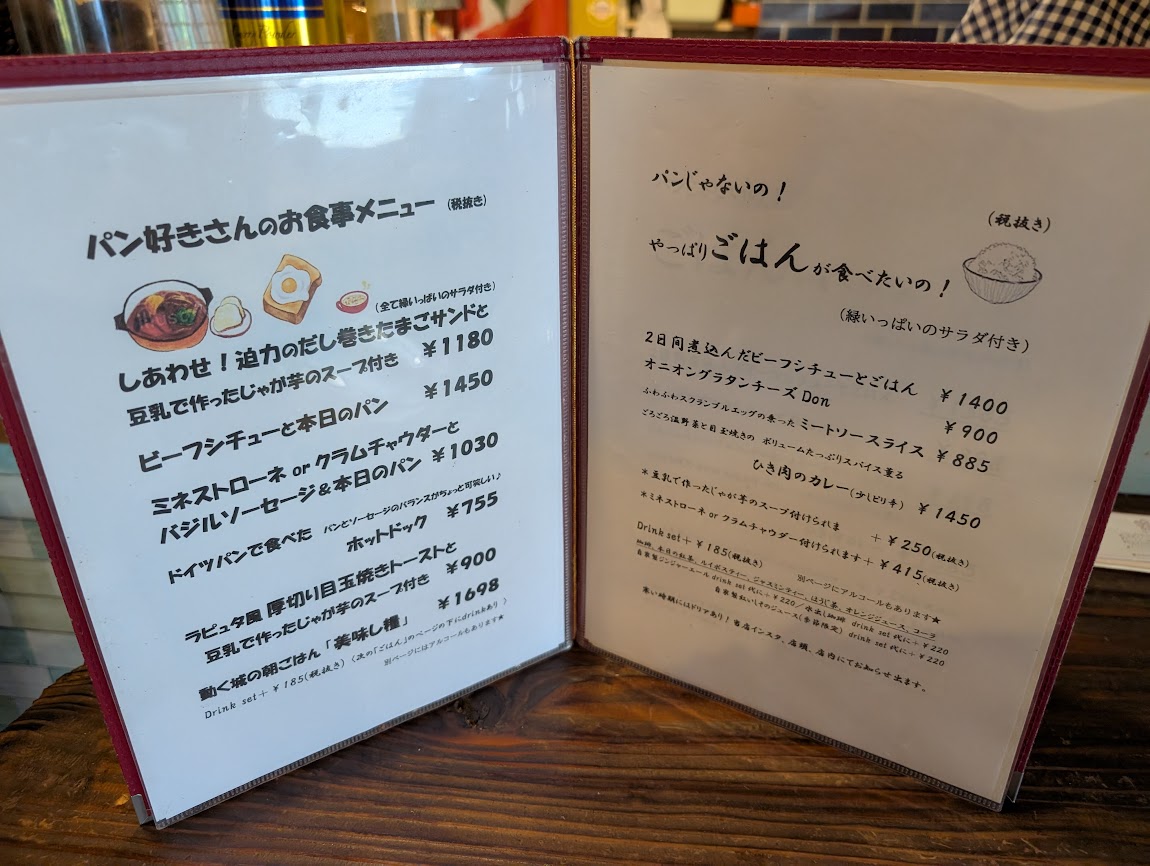 パン好きさんのお食事メニュー (税抜き)
(全て緑いっぱいのサラダ付き)
しあわせ！迫力のだし巻きたまごサンドと
豆乳で作ったじゃが芋のスープ付き ¥1180
ビーフシチューと本日のパン ¥1450
ミネストローネ or クラムチャウダーと
バジルソーセージ＆本日のパン ¥1030
ドイツパンで食べた パンとソーセージのバランスがちょっと可笑しい♪
ホットドック ¥755
ラピュタ風 厚切り目玉焼きトーストと
豆乳で作ったじゃが芋のスープ付き ¥900
動く城の朝ごはん「美味し糧」 ¥1698
Drink set＋¥185(税抜き) 〈次の「ごはん」のページの下にdrinkあり 〉
別ページにはアルコールもあります★
パンじゃないの！
(税抜き)
やっぱりごはんが食べたいの！
(緑いっぱいのサラダ付き)
2日間煮込んだビーフシチューとごはん ¥1400
オニオングラタンチーズ Don ¥900
ふわふわスクランブルエッグの乗った ミートソースライス ¥885
ごろごろ温野菜と目玉焼きの ボリュームたっぷりスパイス薫る
ひき肉のカレー(少しピリ辛) ¥1450
＊豆乳で作ったじゃが芋のスープ付けられま ＋¥250(税抜き)
＊ミネストローネ or クラムチャウダー付けられます＋¥415(税抜き)
Drink set＋¥185(税抜き) 別ページにアルコールもあります★
珈琲、本日の紅茶、ルイボスティー、ジャスミンティー、ほうじ茶、オレンジジュース、コーラ
自家製ジンジャーエール drink set 代に＋¥220／水出し珈琲 drink set 代に＋¥220
自家製紅いしそのジュース(季節限定) drink set 代に＋¥220
寒い時期にはドリアあり！当店インスタ、店頭、店内にてお知らせ出ます。